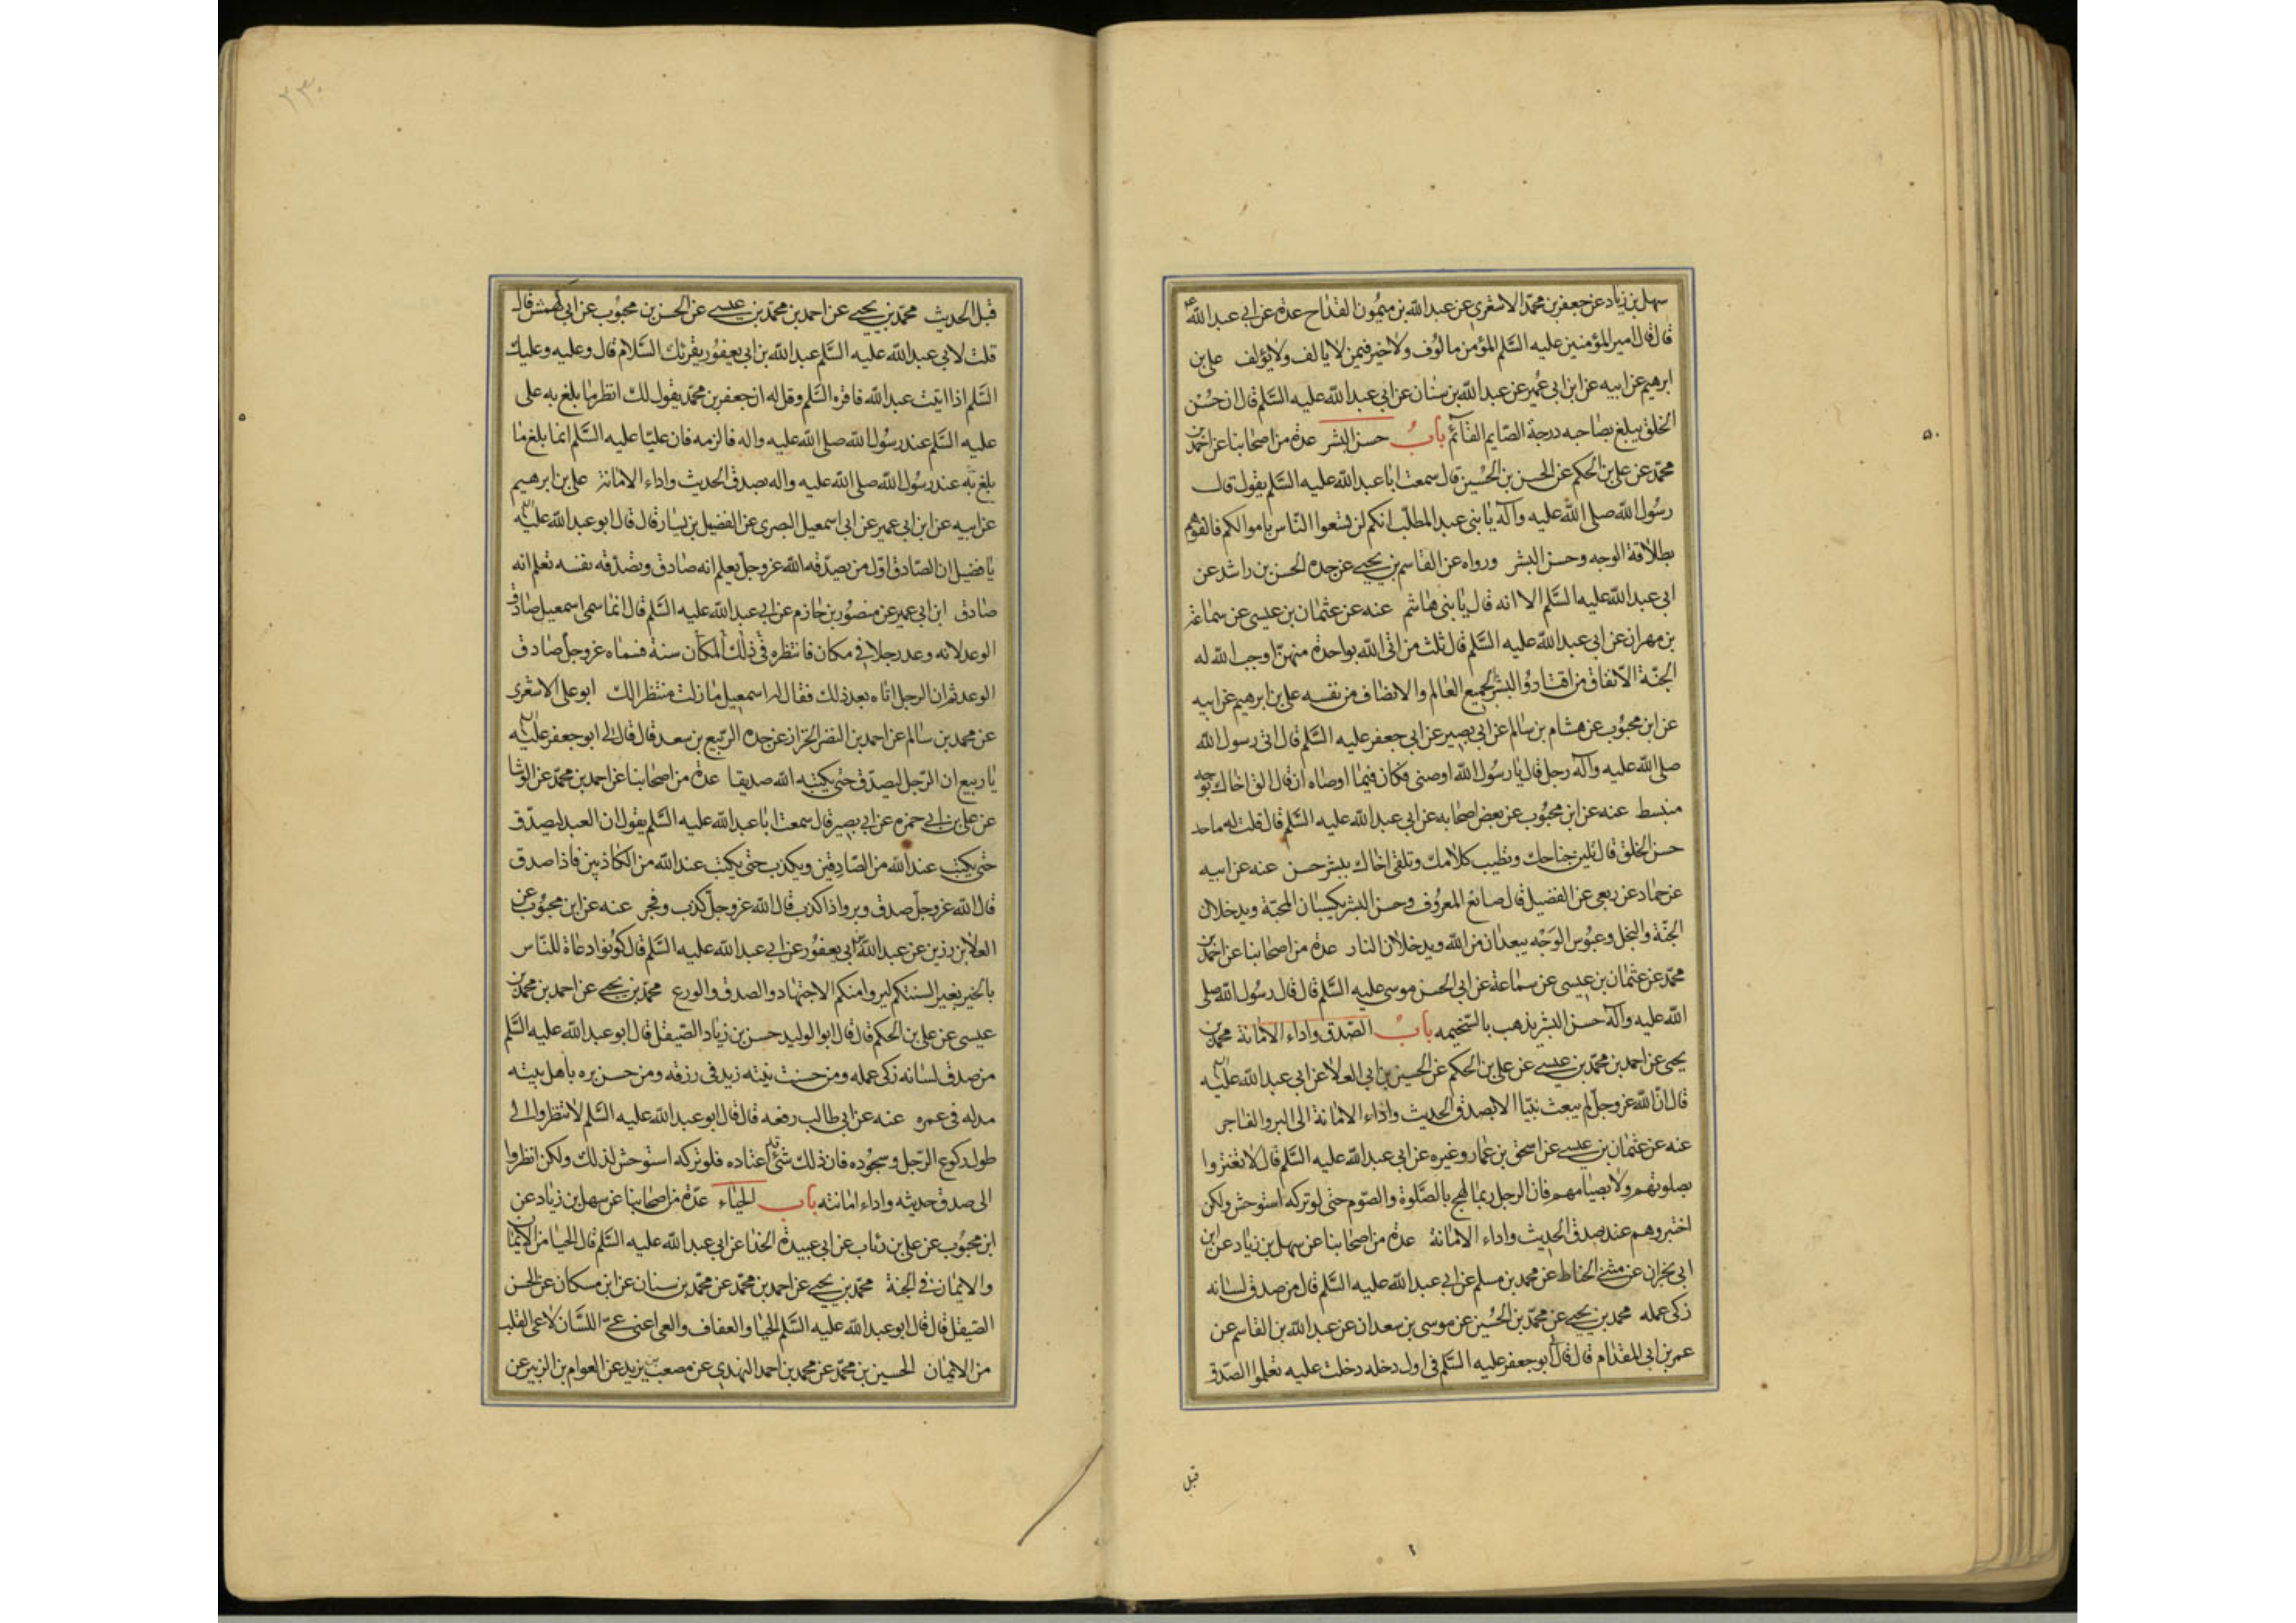 سهل بن زياد عن جعفر بن محمد الاشعري عن عبد الله بن ميمون القداح عدة عن ابي عبد الله ع
قال قال امير المؤمنين عليه السلم المؤمن مالوف ولا خير فيمن لا يالف ولا يؤلف علي بن
ابرهيم عن ابيه عن ابن ابي عمير عن عبد الله بن سنان عن ابي عبد الله عليه السلم قال ان حسن
الخلق يبلغ بصاحبه درجة الصايم القائم باب حسن البشر عدة من اصحابنا عن احمد بن
محمد عن علي بن الحكم عن الحسن بن الحسين قال سمعت ابا عبد الله عليه السلم يقول قال
رسول الله صلى الله عليه وآله يا بني عبد المطلب انكم لن تسعوا الناس باموالكم فالقوهم
بطلاقة الوجه وحسن البشر ورواه عن القاسم بن يحيى عن جده الحسن بن راشد عن
ابي عبد الله عليه السلم الا انه قال يا بني هاشم عنه عن عثمان بن عيسى عن سماعة
بن مهران عن ابي عبد الله عليه السلم قال ثلث من اتى الله بواحدة منهن اوجب الله له
الجنة الانفاق من اقتار والبشر لجميع العالم والانصاف من نفسه علي بن ابرهيم عن ابيه
عن ابن محبوب عن هشام بن سالم عن ابي بصير عن ابي جعفر عليه السلم قال اتى رسول الله
صلى الله عليه وآله رجل قال يا رسول الله اوصني فكان فيما اوصاه ان قال الق اخاك بوجه
منبسط عنه عن ابن محبوب عن بعض اصحابه عن ابي عبد الله عليه السلم قال قلت له ما حد
حسن الخلق قال تلين جناحك وتطيب كلامك وتلقى اخاك ببشر حسن عنه عن ابيه
عن حماد عن ربعي عن الفضيل قال صنائع المعروف وحسن البشر يكسبان المحبة ويدخلان
الجنة والبخل وعبوس الوجه يبعدان من الله ويدخلان النار عدة من اصحابنا عن احمد بن
محمد عن عثمان بن عيسى عن سماعة عن ابي الحسن موسى عليه السلم قال قال رسول الله صلى
الله عليه وآله حسن البشر يذهب بالسخيمه باب الصدق واداء الامانة محمد بن
يحيى عن احمد بن محمد بن عيسى عن علي بن الحكم عن الحسين بن ابي العلا عن ابي عبد الله عليه
قال ان الله عز وجل لم يبعث نبيا الا بصدق الحديث واداء الامانة الى البر والفاجر
عنه عن عثمان بن عيسى عن اسحق بن عمار وغيره عن ابي عبد الله عليه السلم قال لا تغتروا
بصلوتهم ولا بصيامهم فان الرجل ربما لهج بالصلوة والصوم حتى لو تركه استوحش ولكن
اختبروهم عند صدق الحديث واداء الامانة عدة من اصحابنا عن سهل بن زياد عن ابن
ابي نجران عن مثنى الحناط عن محمد بن مسلم عن ابي عبد الله عليه السلم قال من صدق لسانه
زكى عمله محمد بن يحيى عن محمد بن الحسين عن موسى بن سعدان عن عبد الله بن القاسم عن
عمر بن ابي المقدام قال قال ابو جعفر عليه السلم في اول دخله دخلت عليه تعلموا الصدق
قبل
٢٣٠
قبل الحديث محمد بن يحيى عن احمد بن محمد بن عيسى عن الحسن بن محبوب عن ابي كهمش قال
قلت لابي عبد الله عليه السلم عبد الله بن ابي يعفور يقرئك السلام قال وعليه وعليك
السلم اذا اتيت عبد الله فاقره السلم وقل له ان جعفر بن محمد يقول لك انظر ما بلغ به علي
عليه السلم عند رسول الله صلى الله عليه واله فالزمه فان عليا عليه السلم انما بلغ ما
بلغ به عند رسول الله صلى الله عليه واله بصدق الحديث واداء الامانة علي بن ابرهيم
عن ابيه عن ابن ابي عمير عن ابي اسمعيل البصري عن الفضيل بن يسار قال قال ابو عبد الله عليه
يا فضيل ان الصادق اول من يصدقه الله عز وجل يعلم انه صادق وتصدقه نفسه تعلم انه
صادق ابن ابي عمير عن منصور بن حازم عن ابي عبد الله عليه السلم قال انما سمي اسمعيل صادق
الوعد لانه وعد رجلا في مكان فانتظره في ذلك المكان سنة فسماه عز وجل صادق
الوعد ثم ان الرجل اتاه بعد ذلك فقال له اسمعيل ما زلت منتظرا لك ابو علي الاشعري
عن محمد بن سالم عن احمد بن النضر الخزاز عن جده الربيع بن سعد قال قال لي ابو جعفر عليه
يا ربيع ان الرجل ليصدق حتى يكتبه الله صديقا عدة من اصحابنا عن احمد بن محمد عن الوشا
عن علي بن ابي حمزه عن ابي بصير قال سمعت ابا عبد الله عليه السلم يقول ان العبد ليصدق
حتى يكتب عند الله من الصادقين ويكذب حتى يكتب عند الله من الكاذبين فاذا صدق
قال الله عز وجل صدق وبر واذا كذب قال الله عز وجل كذب وفجر عنه عن ابن محبوب عن
العلا بن رزين عن عبد الله بن ابي يعفور عن ابي عبد الله عليه السلم قال كونوا دعاة للناس
بالخير بغير السنتكم ليروا منكم الاجتهاد والصدق والورع محمد بن يحيى عن احمد بن محمد بن
عيسى عن علي بن الحكم قال قال ابو الوليد حسن بن زياد الصيقل قال ابو عبد الله عليه السلم
من صدق لسانه زكى عمله ومن حسنت نيته زيد في رزقه ومن حسن بره باهل بيته
مد له في عمره عنه عن ابي طالب رفعه قال قال ابو عبد الله عليه السلم لا تنظروا الى
طول ركوع الرجل وسجوده فان ذلك شئ قد اعتاده فلو تركه استوحش لذلك ولكن انظروا
الى صدق حديثه واداء امانته باب الحياء عدة من اصحابنا عن سهل بن زياد عن
ابن محبوب عن علي بن رئاب عن ابي عبيدة الحذا عن ابي عبد الله عليه السلم قال الحيا من الايمان
والايمان في الجنة محمد بن يحيى عن احمد بن محمد عن محمد بن سنان عن ابن مسكان عن الحسن
الصيقل قال قال ابو عبد الله عليه السلم الحيا والعفاف والعي اعني عي اللسان لا عي القلب
من الايمان الحسين بن محمد عن محمد بن احمد النهدي عن مصعب بن يزيد عن العوام بن الزبير عن